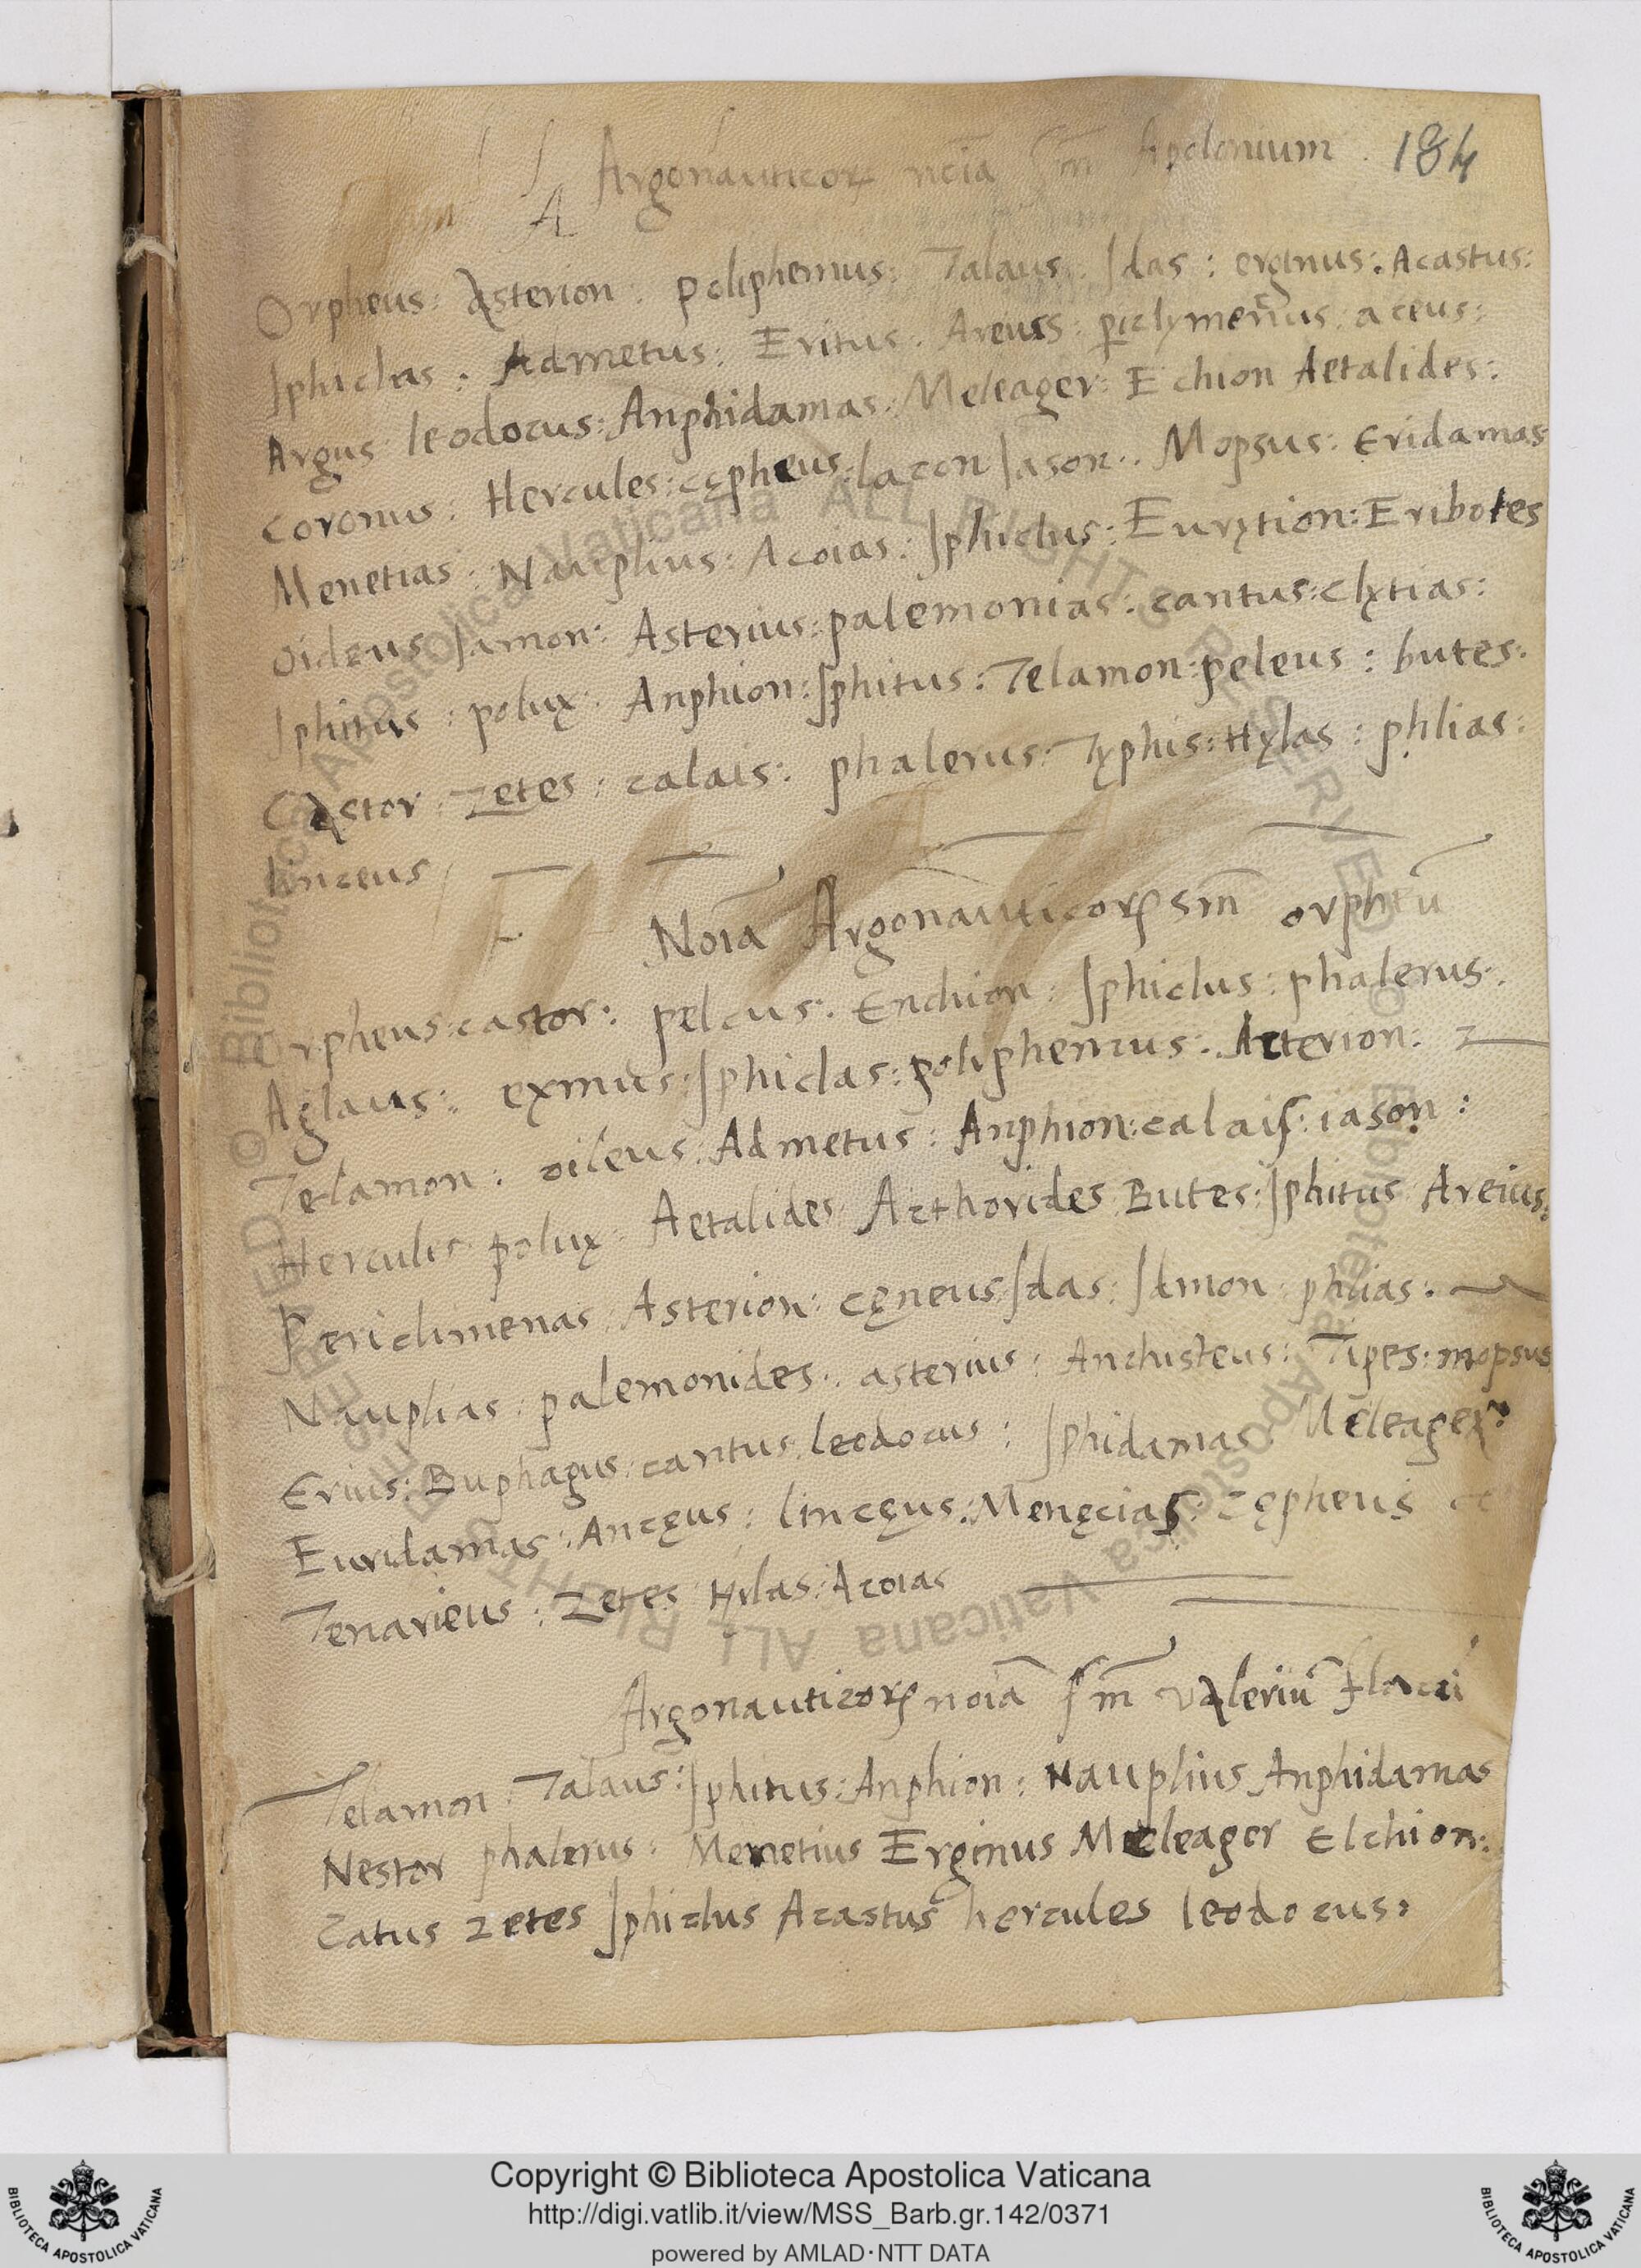 Argonauticoꝝ noīa ſm̄ Apolonium . 184
A
Orpheus : Asterion : poliphemus : Talaus : Idas : erginus : Acastus :
Iphiclas : Admetus : Eritus : Areuss : ꝑiclymenus : aceus :
Argus leodocus : Anphidamas : Meleager : Echion Aetalides :
coronus : Hercules : cępheus : lacon Iason : Mopsus : Eridamas
Menetias : Nauplius : Acoias : Iphiclus : Eurytion : Eribotes
oideus Iamon : Asterius : palemonias : cantus : clytias :
Iphitus : polux : Anphion : Iphitus : Telamon : peleus : butes :
Castor : Zetes : calais : phalerus : Typhis : Hylas : phlias :
linceus
Noīa Argonauticoꝝ sm̄ orpheū
Orpheus : castor : peleus : Enchion : Iphiclus : phalerus :
Aglaus : exmus : Iphiclas : poliphemus : Acterion : z
Telamon : oileus : Admetus : Anphion : calaiſ : iason :
Hercules polux Aetalides Acthorides Butes : Iphitus Areius :
Periclimenas Asterion : cęneus Idas : Idmon phlias :
Nauplias : palemonides : asterius : Anchisteus : Tipes : mopsus
Erius : Buphagus : cantus leodocus : Iphidamas Meleager :
Euridamas : Ancęus : lincęus : Menęcias : cępheus
Tenarieus : Zetes Hylas : Acoias
Argonauticoꝝ noīa ſm̄ valeriū flacci
Telamon : Talaus : Iphitus : Anphion : Nauplius Anphidamas
Nestor phalerus : Menetius Erginus Meleager Elchion :
Catus zetes Iphiclus Acastus hercules leodocus :
Copyright © Biblioteca Apostolica Vaticana
http://digi.vatlib.it/view/MSS_Barb.gr.142/0371
powered by AMLAD·NTT DATA